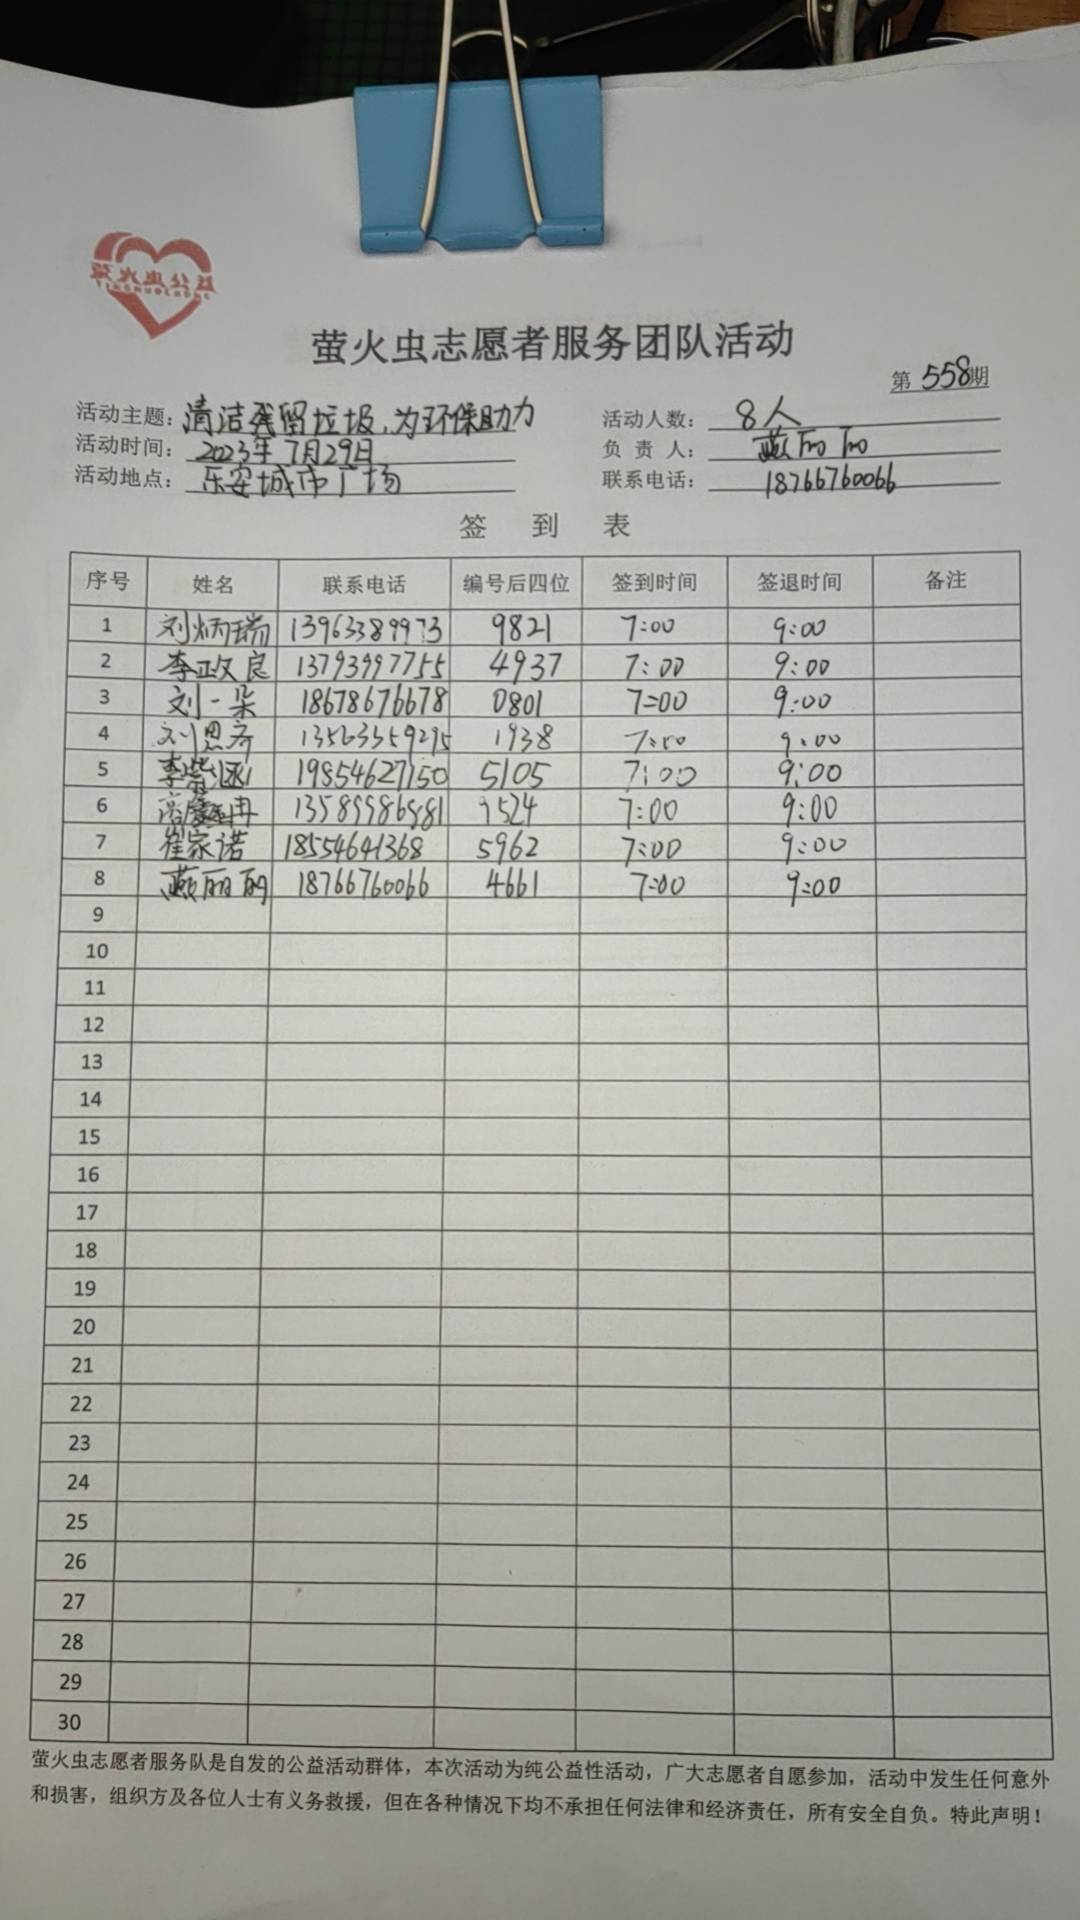 萤火虫公益
YINGHUOCHONG
萤火虫志愿者服务团队活动
第 558期
活动主题：清洁残留垃圾,为环保助力 活动人数：8人
活动时间：2023年7月29日 负 责 人：燕丽丽
活动地点：乐安城市广场 联系电话：18766760066
签 到 表
序号 姓名 联系电话 编号后四位 签到时间 签退时间 备注
1 刘炳瑞 13963389973 9821 7:00 9:00
2 李政良 13793997755 4937 7:00 9:00
3 刘一朵 18678676678 0801 7:00 9:00
4 刘思齐 1938 7:00 9:00
5 李紫涵 19854627150 5105 7:00 9:00
6 13589986981 7:00 9:00
7 崔家诺 18554641368 5962 7:00 9:00
8 燕丽丽 18766760066 4661 7:00 9:00
9
10
11
12
13
14
15
16
17
18
19
20
21
22
23
24
25
26
27
28
29
30
萤火虫志愿者服务队是自发的公益活动群体，本次活动为纯公益性活动，广大志愿者自愿参加，活动中发生任何意外
和损害，组织方及各位人士有义务救援，但在各种情况下均不承担任何法律和经济责任，所有安全自负。特此声明！